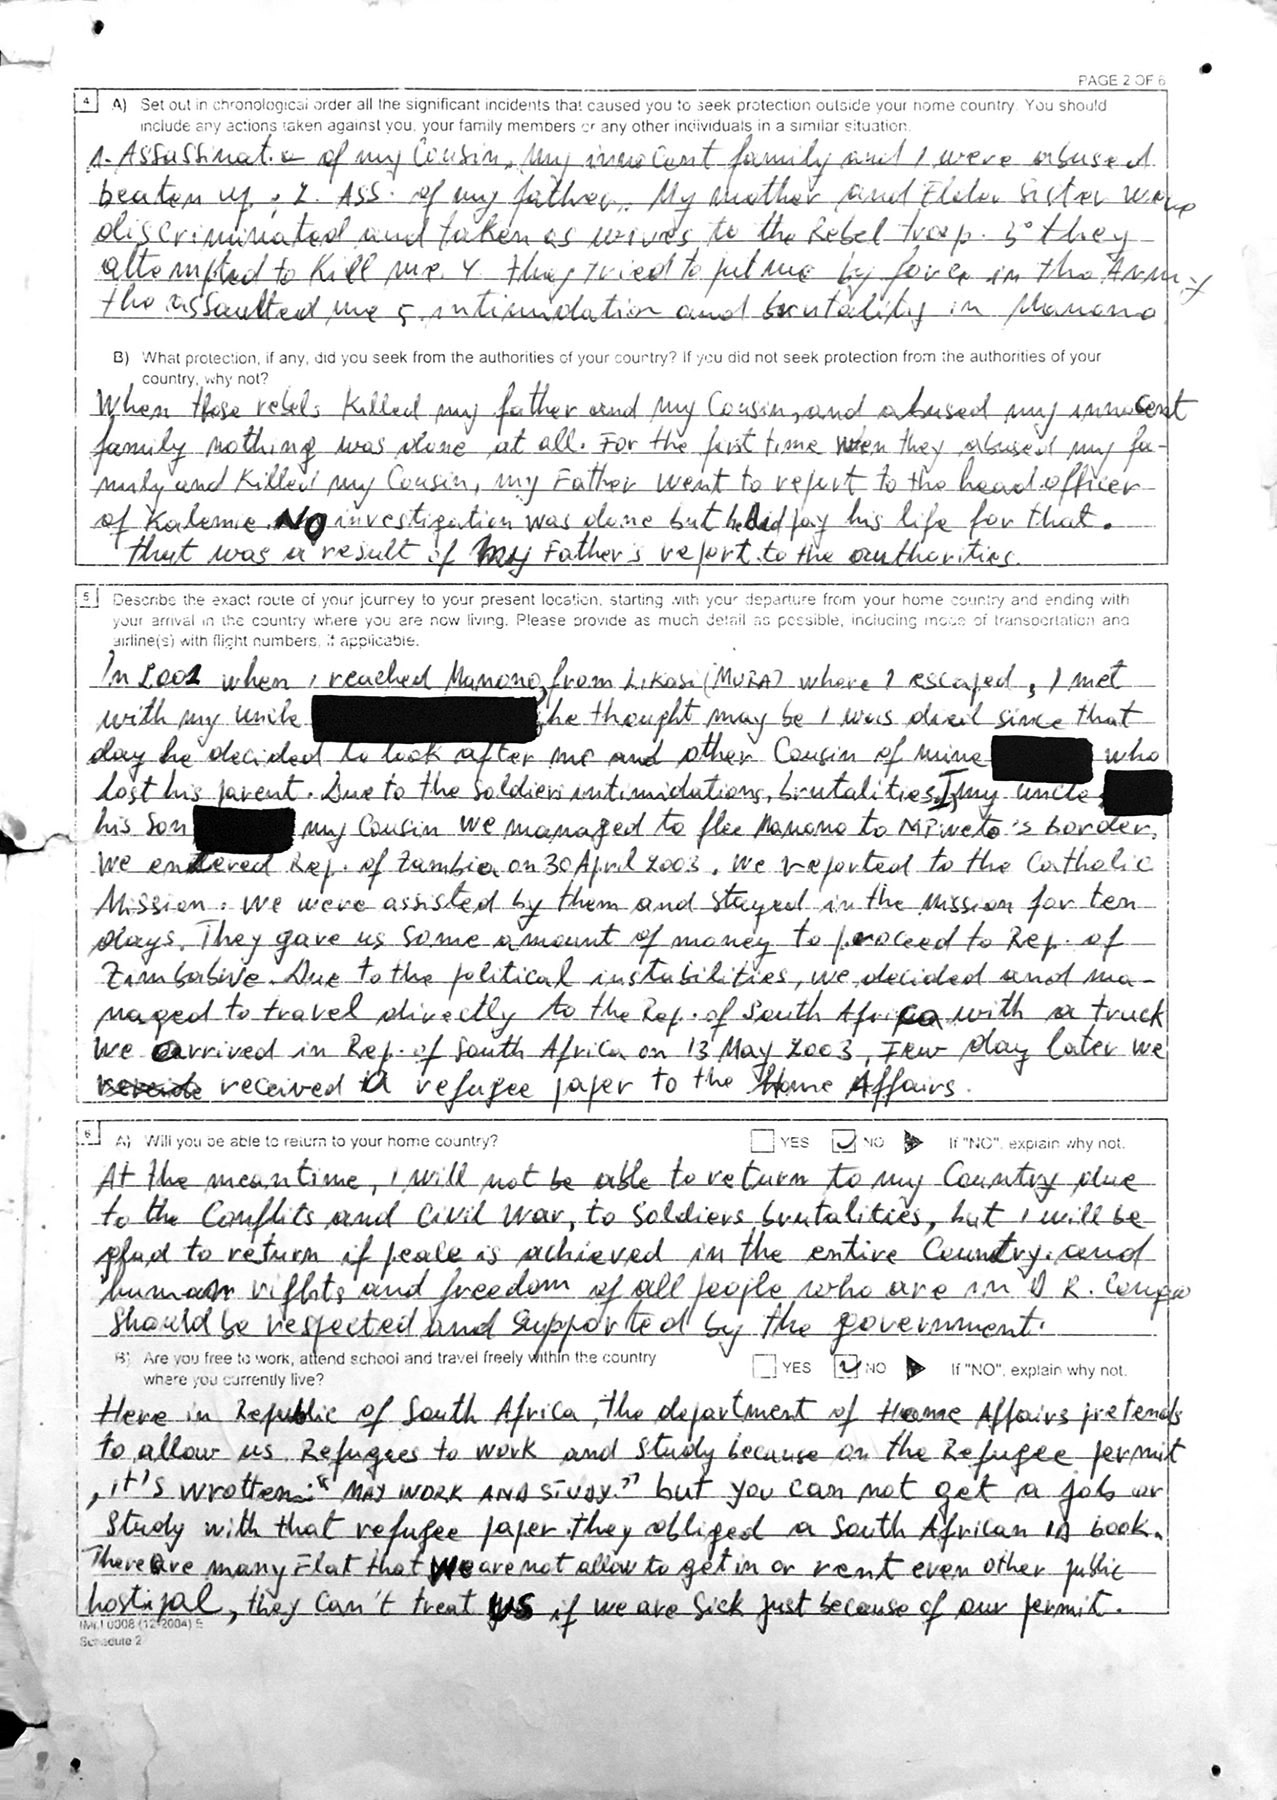 PAGE 2 OF 6
4 A) Set out in chronological order all the significant incidents that caused you to seek protection outside your home country. You should
include any actions taken against you, your family members or any other individuals in a similar situation.
1. Assassinat. of my Cousin, My innocent family and I were abused
beaten up. 2. Ass. of my father. My mother and Elder Sister were
discriminated and taken as wives to the Rebel troop. 3° they
attempted to Kill me. 4 they tried to put me by force in the Army
the assaulted me 5 intimidation and brutality in Manono
B) What protection, if any, did you seek from the authorities of your country? If you did not seek protection from the authorities of your
country, why not?
When those rebels Killed my father and my Cousin, and abused my innocent
family nothing was done at all. For the first time when they abused my fa-
mily and Killed my Cousin, my Father went to report to the head officer
of Kalemie. NO investigation was done but he did pay his life for that.
that was a result of My Father's report to the authorities.
5 Describe the exact route of your journey to your present location, starting with your departure from your home country and ending with
your arrival in the country where you are now living. Please provide as much detail as possible, including mode of transportation and
airline(s) with flight numbers, if applicable.
In 2001 when I reached Manono, from Likasi (MURA) where I escaped, I met
with my uncle he thought may be I was died since that
day he decided to look after me and other Cousin of mine who
lost his parent. Due to the Soldiers intimidations, brutalities I, my uncle
his Son my Cousin we managed to flee Manono to MPweto's border.
We entered Rep. of Zambia on 30 April 2003. We reported to the Catholic
Mission. We were assisted by them and stayed in the Mission for ten
days. They gave us some amount of money to proceed to Rep. of
Zimbabwe. Due to the political instabilities, we decided and ma-
naged to travel directly to the Rep. of South Africa with a truck
We arrived in Rep. of South Africa on 13 May 2003, Few day later we
received a refugee paper to the Home Affairs.
6 A) Will you be able to return to your home country? YES NO If "NO", explain why not.
At the meantime, I will not be able to return to my Country due
to the Conflits and Civil War, to Soldiers brutalities, but I will be
glad to return if peace is achieved in the entire Country. and
human rights and freedom of all people who are in D R. Congo
Should be respected and Supported by the government.
B) Are you free to work, attend school and travel freely within the country YES NO If "NO", explain why not.
where you currently live?
Here in Republic of South Africa, the department of Home Affairs pretends
to allow us Refugees to work and Study because on the Refugee permit
, it's wrotten: "MAY WORK AND STUDY." but you can not get a job or
Study with that refugee paper. they obliged a South African ID book.
There are many Flat that We are not allow to get in or rent even other public
hostipal, they Can't treat US if we are Sick just because of our permit.
IMM 0008 (12-2004) E
Schedule 2